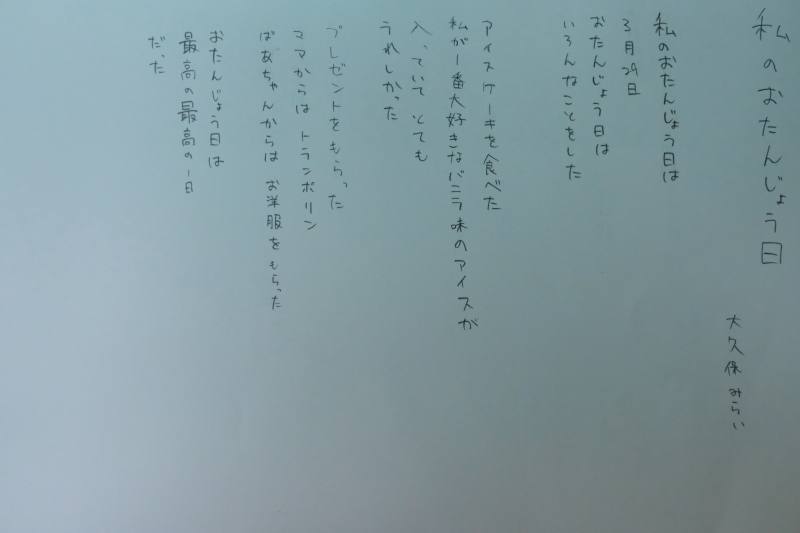 私のおたんじょう日
大久保みらい
私のおたんじょう日は
3月29日
おたんじょう日は
いろんなことをした
アイスケーキを食べた
私が一番大好きなバニラ味のアイスが
入っていてとても
うれしかった
プレゼントをもらった
ママからはトランポリン
ばあちゃんからはお洋服をもらった
おたんじょう日は
最高の最高の一日
だった